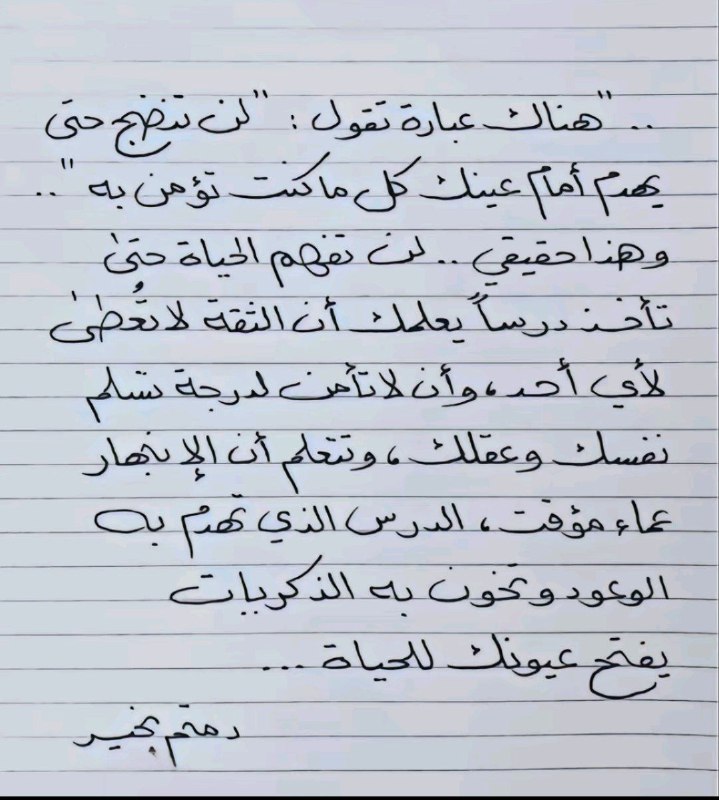 .. "هناك عبارة تقول : "لن تنضج حتى
يهدم أمام عينك كل ما كنت تؤمن به" ..
وهذا حقيقي .. لن تفهم الحياة حتىٰ
تأخذ درساً يعلمك أن الثقة لا تُعطىٰ
لأي أحد ، وأن لا تأمن لدرجة تسلم
نفسك وعقلك ، وتتعلم أن الإنبهار
عماء مؤقت ، الدرس الذي تهدم به
الوعود وتخون به الذكريات
يفتح عيونك للحياة ...
دمتم بخير